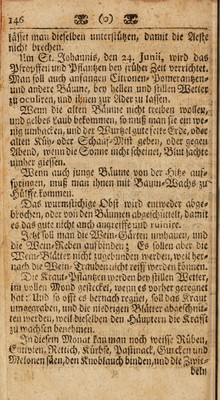 146 (0)
lässet man dieselben unterstützen, damit die Aeste
nicht brechen.
Um St. Johannis, den 24. Junii, wird das
Propffen und Pflantzen bey früher Zeit verrichtet.
Man soll auch anfangen Citronen- Pomerantzen-
und andere Bäume, bey hellen und stillen Wetter
zu oculiren, und ihnen zur Ader zu lassen.
Wenn die alten Bäume nicht treiben wollen,
und gelbes Laub bekommen, so muß man sie ein we-
nig umhacken, und der Wurtzel gute feiste Erde, oder
alten Kühe- oder Schaaf-Mist geben, oder gegen
Abend, wenn die Sonne nicht scheinet, Blut sachte
umher giessen.
Wenn auch junge Bäume von der Hitze auf-
springen, muß man ihnen mit Baum-Wachs zu
Hülffe kommen.
Das wurmstichige Obst wird entweder abge-
brochen, oder von den Bäumen abgeschüttelt, damit
es das gute nicht auch anzustecke und ruinire.
Jetzt soll man die Wein-Gärten umhauen, und
die Wein-Reben aufbinden; Es sollen aber die
Wein-Blätter nicht zugebunden werden, weil her-
nach die Wein-Trauben nicht reiff werden können.
Die Kraut-Pflantzen werden bey stillen Wetter,
im vollen Mond gesteckt, wenn es vorher geregnet
hat: Und so offt es hernach regnet, soll das Kraut
umgegraben, und die niedrigen Blätter abgeschnit-
ten werden, weil dieselben den Häuptern die Krafft
zu wachsen benehmen.
In diesem Monat kan man noch weisse Rüben,
Endivien, Rettich, Kürbse, Pastinack, Gurcken und
Melonen säen, den Knoblauch binden, und die Zwie-
beln